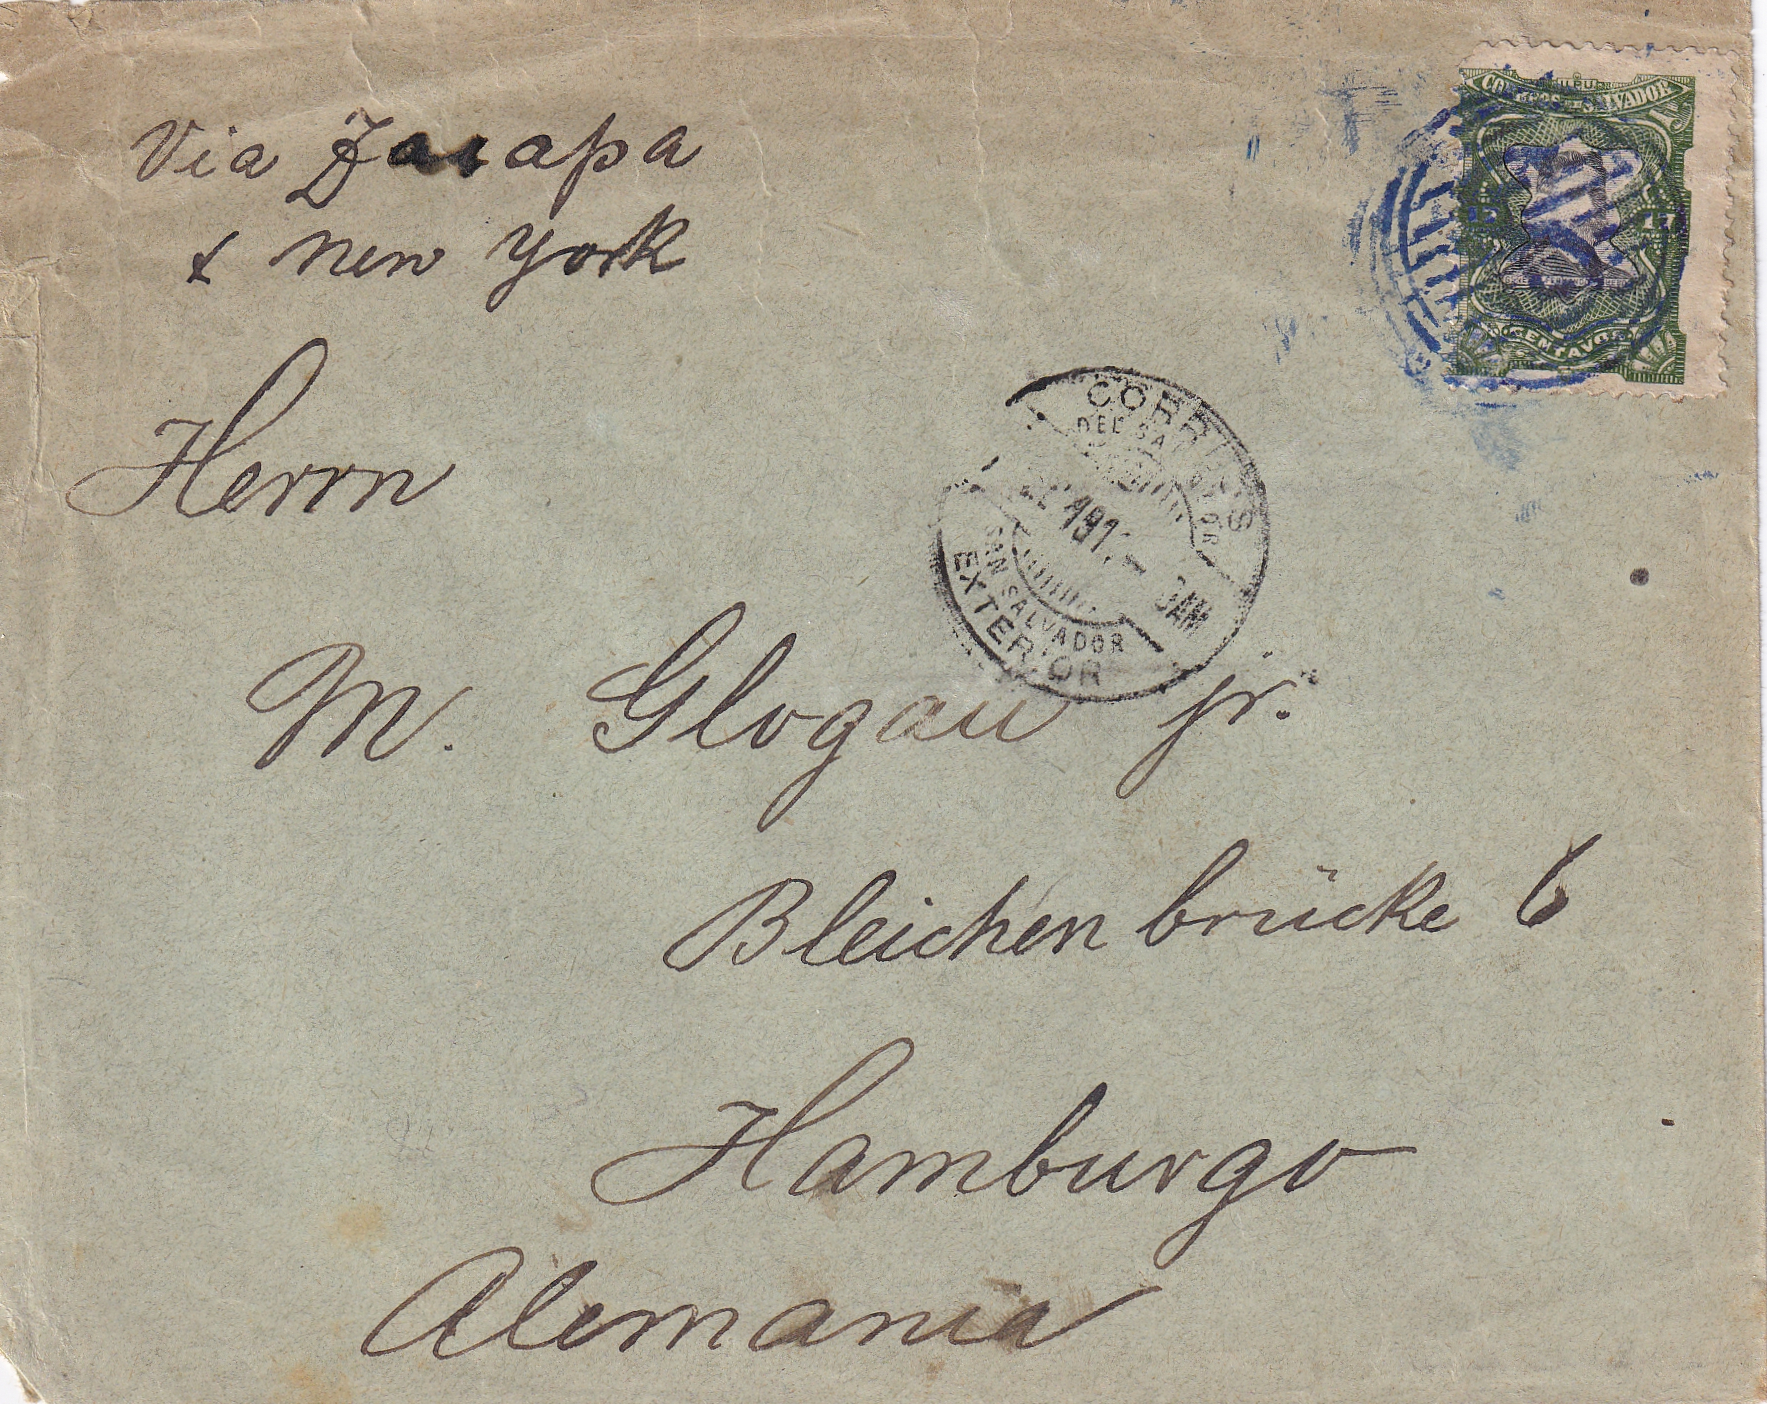 Via Zacapa
& New York
CORREOS DE SALVADOR
17
CENTAVOS
CORREOS
DEL SALVADOR
3AM
SAN SALVADOR
EXTERIOR
Herrn
M. Glogau jr.
Bleichenbrücke 6
Hamburgo
Alemania